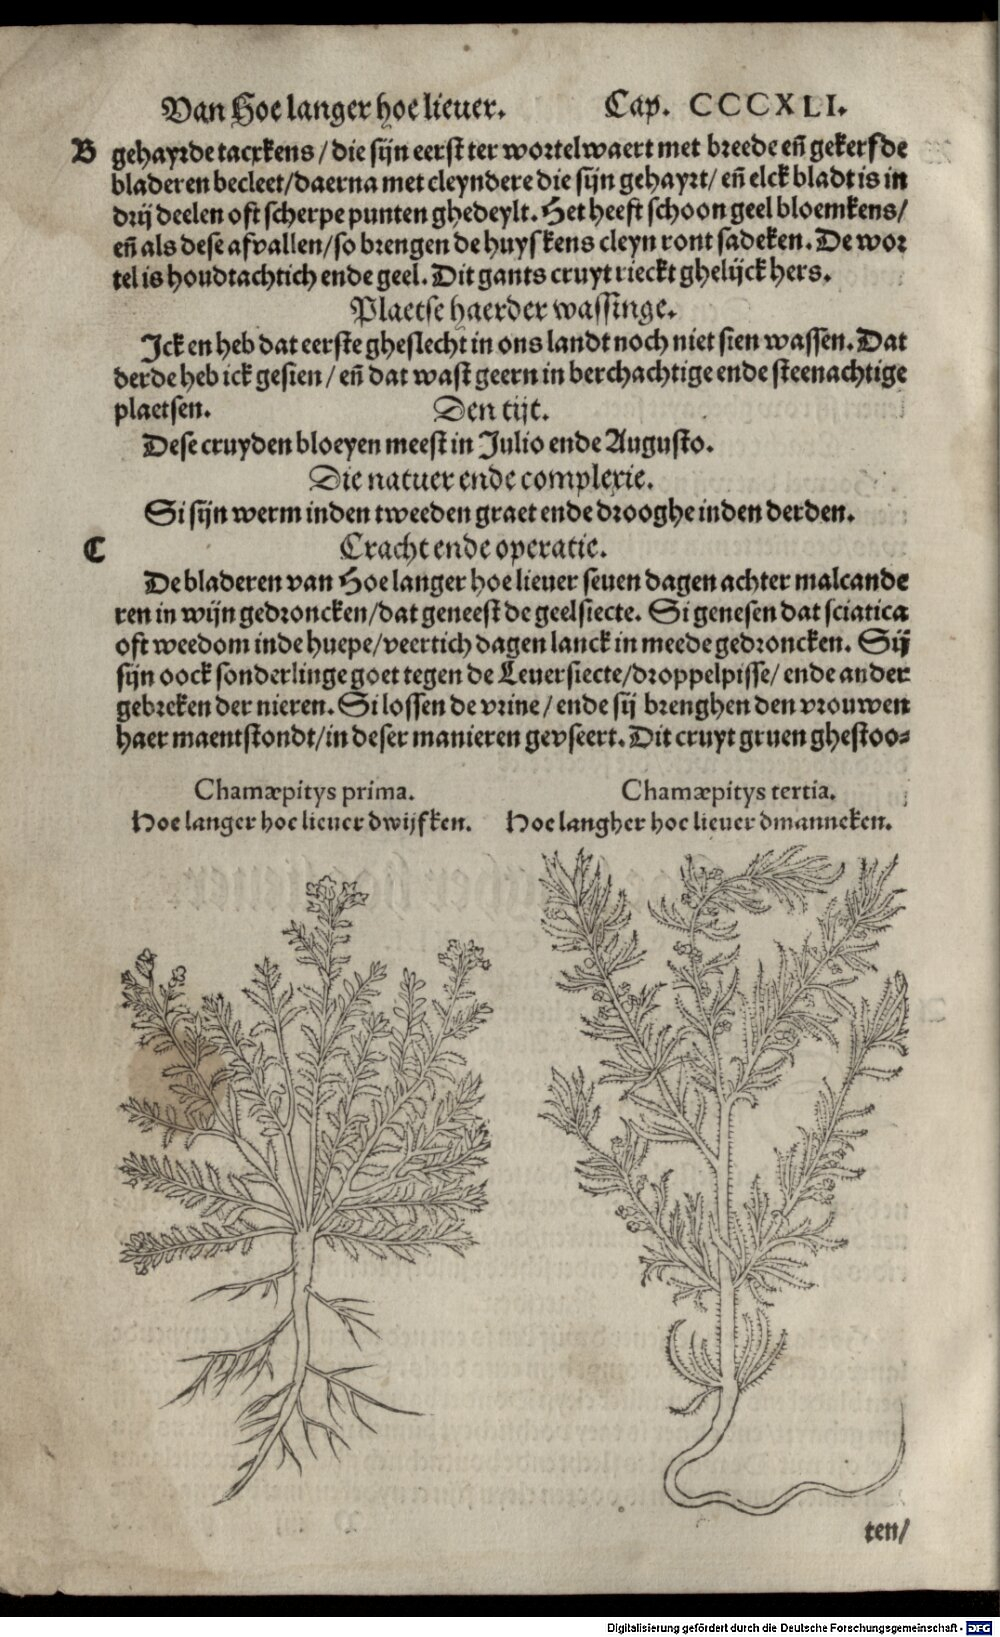 Van Hoe langer hoe lieuer. Cap. CCCXLI.
B gehayrde tacxkens / die sijn eerst ter wortel waert met breede eñ gekerfde
bladeren becleet/daerna met cleyndere die sijn gehayrt/ eñ elck bladt is in
drij deelen oft scherpe punten ghedeylt. Het heeft schoon geel bloemkens/
eñ als dese afvallen/so brengen de huyskens cleyn ront sadeken. De wor
tel is houdtachtich ende geel. Dit gants cruyt rieckt ghelijck hers.
Plaetse haerder wassinge.
Ick en heb dat eerste gheslecht in ons landt noch niet sien wassen. Dat
derde heb ick gesien / eñ dat wast geern in berchachtige ende steenachtige
plaetsen. Den tijt.
Dese cruyden bloeyen meest in Julio ende Augusto.
Die natuer ende complexie.
Si sijn werm inden tweeden graet ende drooghe inden derden.
C Cracht ende operatie.
De bladeren van Hoe langer hoe lieuer seuen dagen achter malcande
ren in wijn gedroncken/dat geneest de geelsiecte. Si genesen dat sciatica
oft weedom inde huepe/veertich dagen lanck in meede gedroncken. Sij
sijn oock sonderlinge goet tegen de Leuersiecte/droppelpisse/ ende ander
gebreken der nieren. Si lossen de vrine / ende sij brenghen den vrouwen
haer maentstondt/in deser manieren gevseert. Dit cruyt gruen ghestoo-
Chamæpitys prima.
Hoe langer hoe lieuer dwijfken.
Chamæpitys tertia.
Hoe langher hoe lieuer dmanneken.
ten/
Digitalisierung gefördert durch die Deutsche Forschungsgemeinschaft - DFG